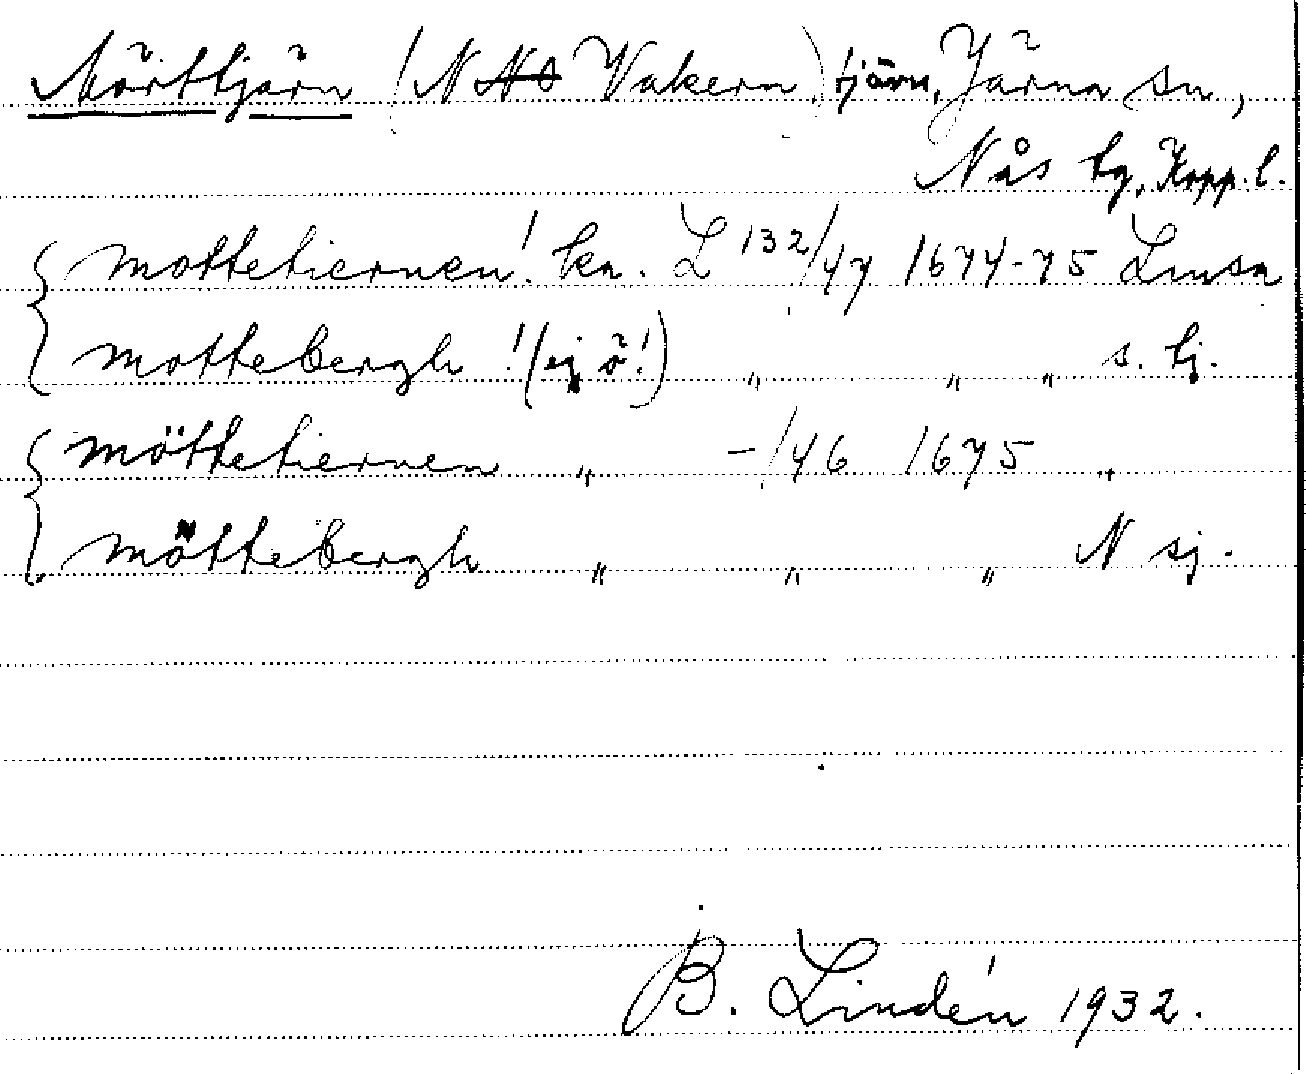 Mörttjärn (N Vakern) tjärn, Järna sn,
Nås tg, Kopp. l.
mottetiernen! ka. L 132/47 1674-75 Lmsa
mottebergh! (ej ö!) " " " s. tj.
möttetiernen " -/46 1675 "
möttebergh " " " N sj.
B. Lindén 1932.